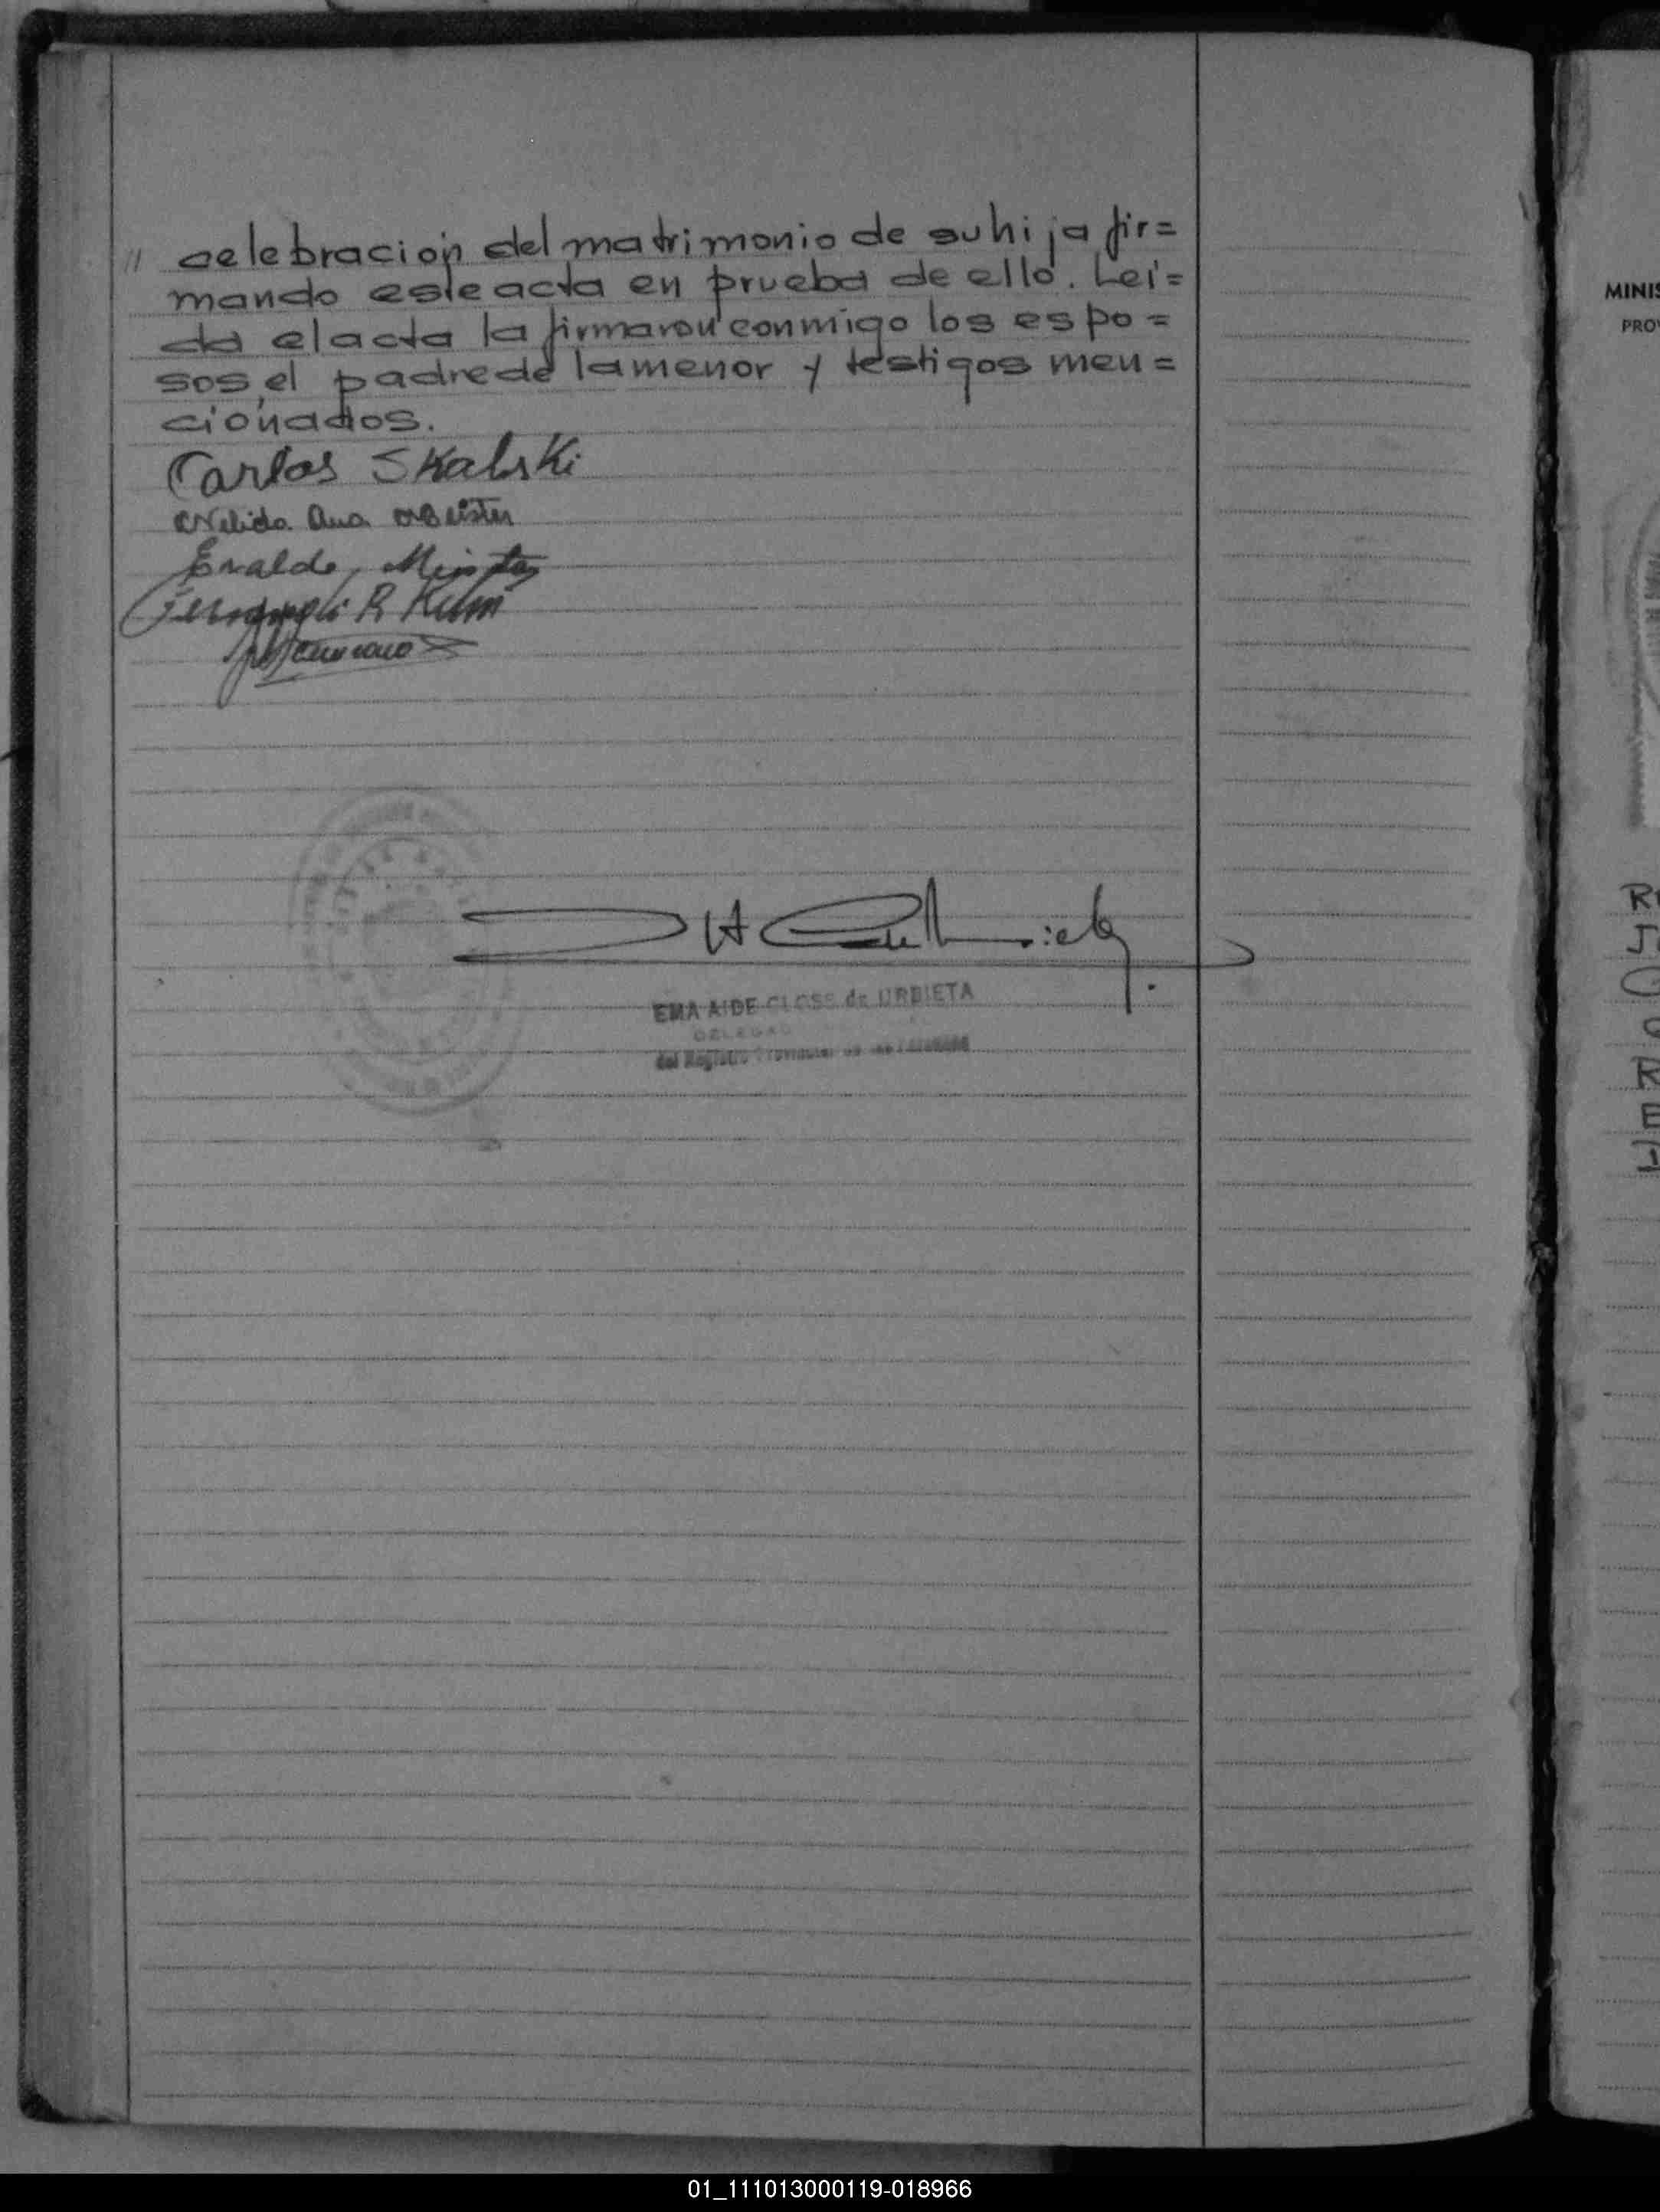 // celebración del matrimonio de su hija fir=
mando este acta en prueba de ello. Leí=
da el acta la firmaron conmigo los espo=
sos, el padre de la menor y testigos men=
cionados.
Carlos Skalski
Nelida Ana
Evaldo
R
EMA AIDE CLOSS de URBIETA
del Registro Provincial de las Personas
MINIS
PRO
01_111013000119-018966